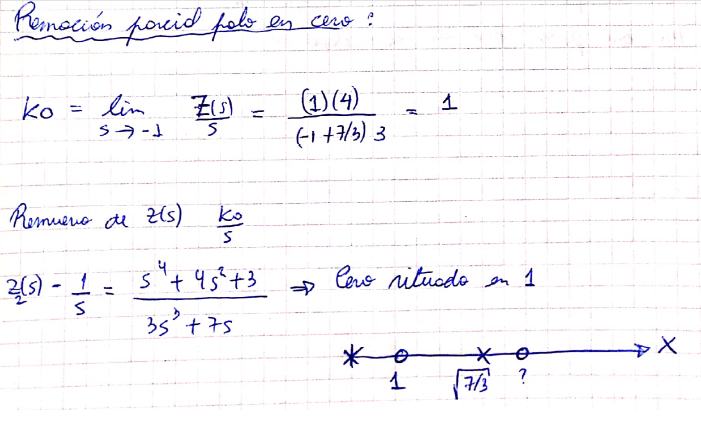 Remoción parcial polo en cero :
k0 = lim s→-1 Z(s)/s = (1)(4)/((-1+7/3) 3) = 1
Remuevo de Z(s) k0/s
Z2(s) - 1/s = (s^4 + 4s^2 + 3)/(3s^3 + 7s) ⇒ Cero situado en 1
X
1 √7/3 ?